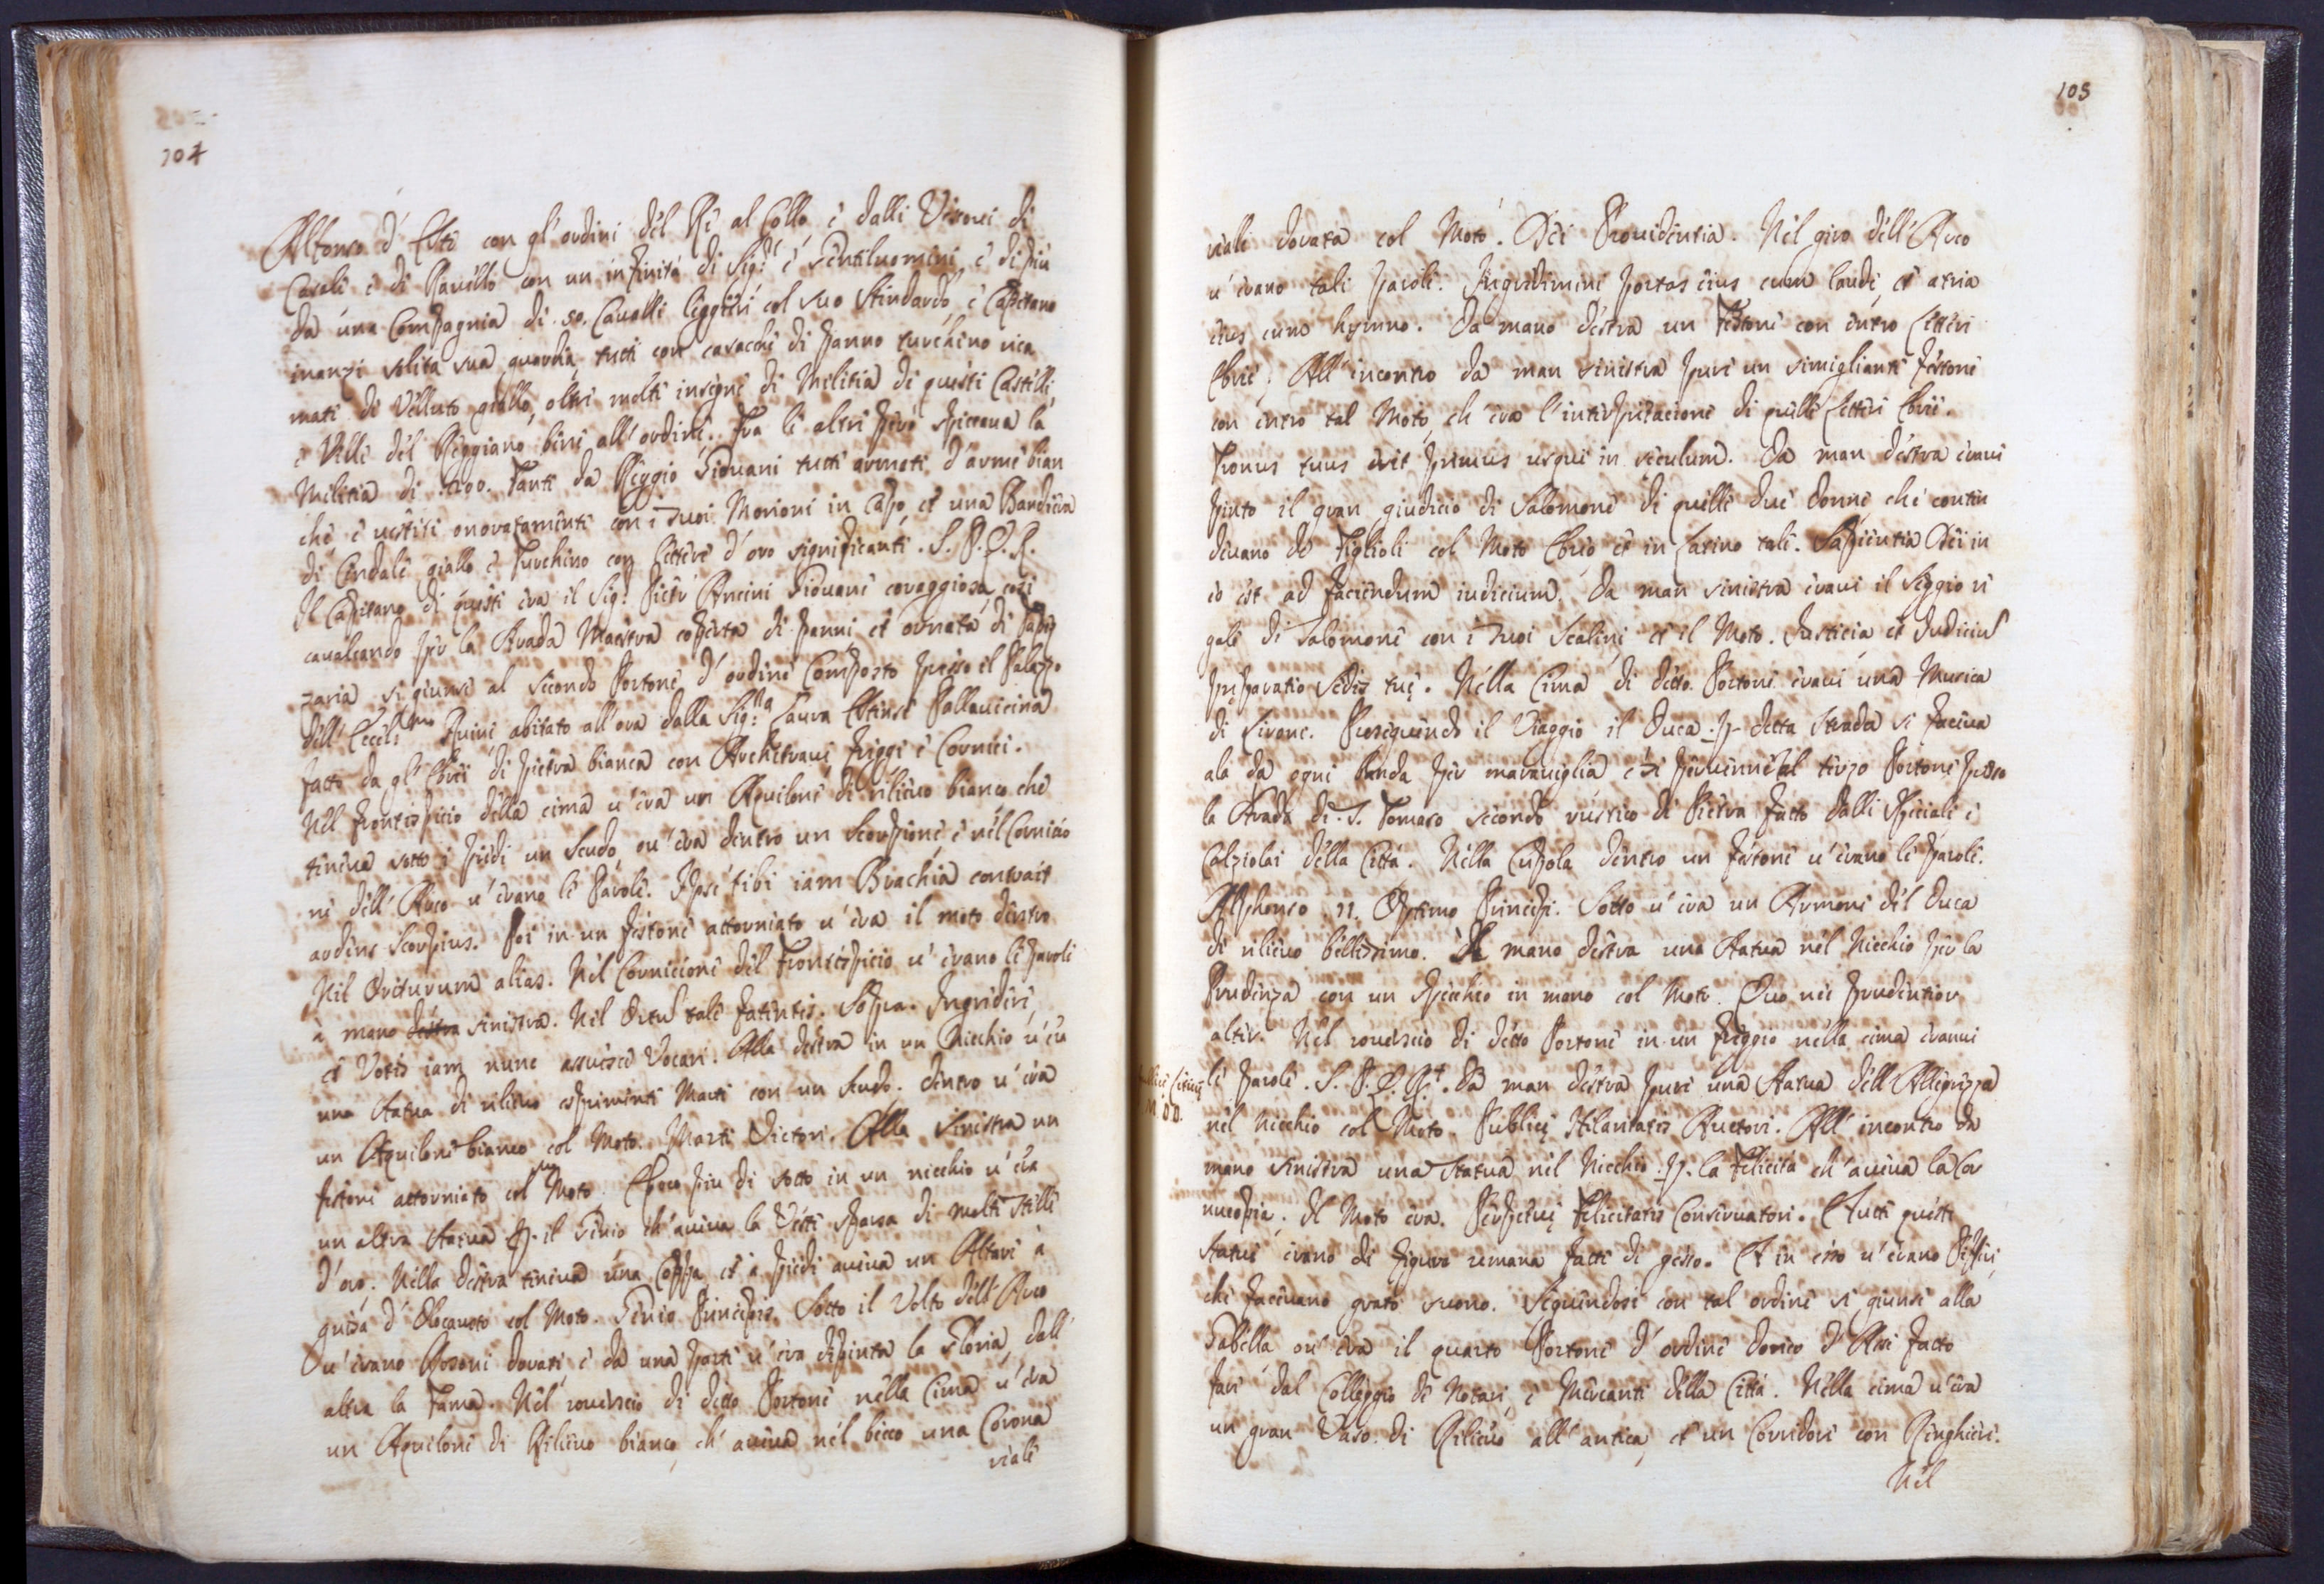 104
Alfonso d'Este con gl'ordini del Rè al Collo è dalli Vescovi di
Casale è di Ravello con un infinità di Sig.ri è Gentiluomini è di più
da una Compagnia di 50. Cavalli leggieri col suo Stendardo, è Capitano
inanzi solita sua guardia, tutti con casacche di panno turchino rica
mati di Velluto giallo, oltre molti insegne di Militia di questi Castelli,
è Ville del Reggiano bene all'ordine. Fra le altri però spiccava la
Militia di Fanti da Reggio Giovani tutti armati d'arme bian
che è vestiti onoratamente con i suoi Morioni in Capo, et una Bandiera
di Cendale giallo è Turchino con lettere d'oro significanti. S. P. Q. R.
Il Capitano di questi era il Sig.r Pietro Ancini Giovane coraggioso, così
cavalcando per la Strada Maestra coperta di panni et ornata di Tapez
zaria si giunse al secondo Portone d'ordine Composto presso il Palazzo
dell' Ruini abitato all'ora dalla Sig.ra Laura Estense Pallavicina
fatto da gl'Ebrei di pietra bianca con Architravi freggi è Cornici.
Nel frontispicio della cima v'era un Aquilone di rilievo bianco che
teneva sotto i piedi un Scudo, ov'era dentro un Scorpione è nel Cornicio
ne dell'Arco v'erano le Parole. Ipse tibi iam Brachia contrait
ardens Scorpius. Poi in un festone attorniato v'era il moto dentro
Nil Oriturum alias. Nel Cornicione del Frontispicio v'erano le parole
à mano destra sinistra. Nil Ortum tale fatentes. Sopra. Ingredere,
et Votis iam nunc assuesce Vocari. Alla destra in un Nicchio v'e
una Statua di rilievo esprimente Marte con un scudo. dentro v'era
un Aquilone bianco col Moto. Marti Victori. Alla sinistra un
festone attorniato col Moto. E poco più di sotto in un nicchio v'era
un altra Statua p. il Genio ch'aveva la Veste sparsa di molte stelle
d'oro. Nella destra teneva una Coppa et à piedi aveva un Altare à
guisa d'Olocausto col Moto. Genio Principis. Sotto il Volto dell'Arco
v'erano Rosoni dorati è da una parte v'era dipinta la Gloria, dall'
altra la Fama. Nel rovescio di detto Portone nella Cima v'era
un Aquilone di Rilievo bianco, ch'aveva nel becco una Corona
reale
105
reale dorata col Moto. Dei Providentia. Nel giro dell'Arco
v'erano tali parole. Ingredimini portas eius cum laude, et atria
eius cum hymno. Da mano destra un Festone con entro lettere
Ebree; All'incontro da man sinistra pure un simigliante festone
con entro tal Moto, ch'era l'interpretacione di quelle lettere Ebree.
Tronus tuus erit primus usque in seculum. Da man destra eravi
pinto il gran giudicio di Salomone di quelle due donne che conten
devano de Figlioli col Moto Ebreo et in Latino tale. Sapientia Dei in
eo est ad faciendum iudicium. Da man sinistra eravi il Seggio re
gale di Salomone con i suoi Scalini, et il Moto. Justicia et Judicium
preparatio Sedis tuę. Nella Cima di detto Portone eravi una Musica
di Lirone. Proseguendo il Viaggio il Duca p. detta Strada si faceva
ala da ogni banda per maraviglia è si pervenne al terzo Portone presso
la Strada di S. Tomaso secondo rustico di Pietra fatto dalli Speciali è
Calzolai della Città. Nella Cupola dentro un festone v'erano le parole.
Alphonso II. Optimo Principi. Sotto v'era un Armone del Duca
di rilievo bellissimo. A mano destra una Statua nel Nicchio per la
Prudenza con un Specchio in mano col Moto. Quo nec prudentior
alter. Nel rovescio di detto Portone in un freggio nella cima eranvi
le parole. S. P. Q. R. Da man destra pure una Statua dell'Allegrezza
nel Nicchio col Moto. Publicę Hilaritatis Auctori. All'incontro da
mano sinistra una Statua nel Nicchio p. la Felicità ch'aveva la Cor
nucopia. Il Moto era. Perpetuę Felicitatis Conservatori. E tutte queste
Statue erano di figura romana fatte di gesso. Et in esso v'erano Piffari,
che facevano grato suono. Seguendosi con tal ordine si giunse alla
Gabella ov'era il quarto Portone d'ordine Dorico d'Assi fatto
fare dal Colleggio de Notari, è Mercanti della Città. Nella cima v'era
un gran Vaso di Rilievo all'antica, et un Corridore con Ringhiere.
Nel